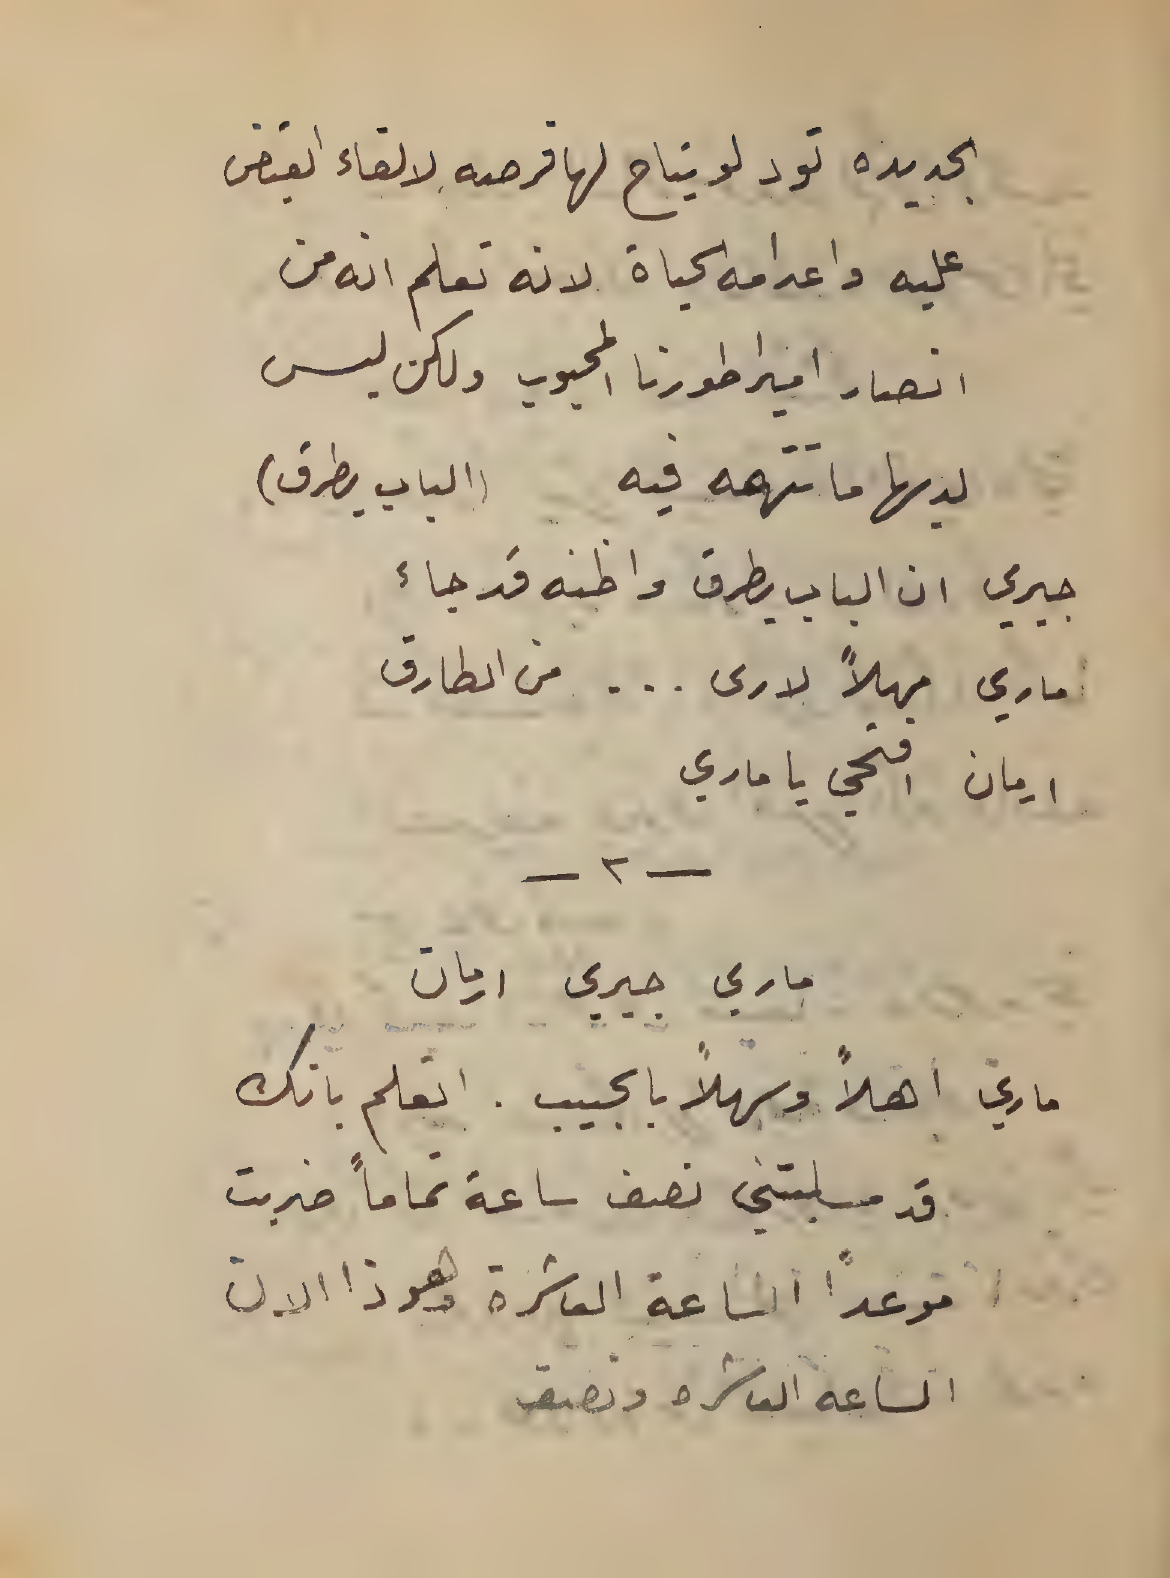 الجديده تود لو يتاح لها فرصه لالقاء القبض
عليه واعدامه الحياة لانه تعلم انه من
انصار امبراطورنا المحبوب ولكن ليس
لديها ما تتهمه فيه (الباب يطرق)
جيري ان الباب يطرق واظنه قد جاء
ماري مهلاً لارى ... من الطارق
ارمان افتحي يا ماري
— ٢ —
ماري جيري ارمان
ماري اهلاً وسهلاً بالحبيب . اتعلم بانك
قد سلبتني نصف ساعة تماماً ضربت
موعداً الساعة العاشرة وهوذا الان
الساعه العاشره ونصف